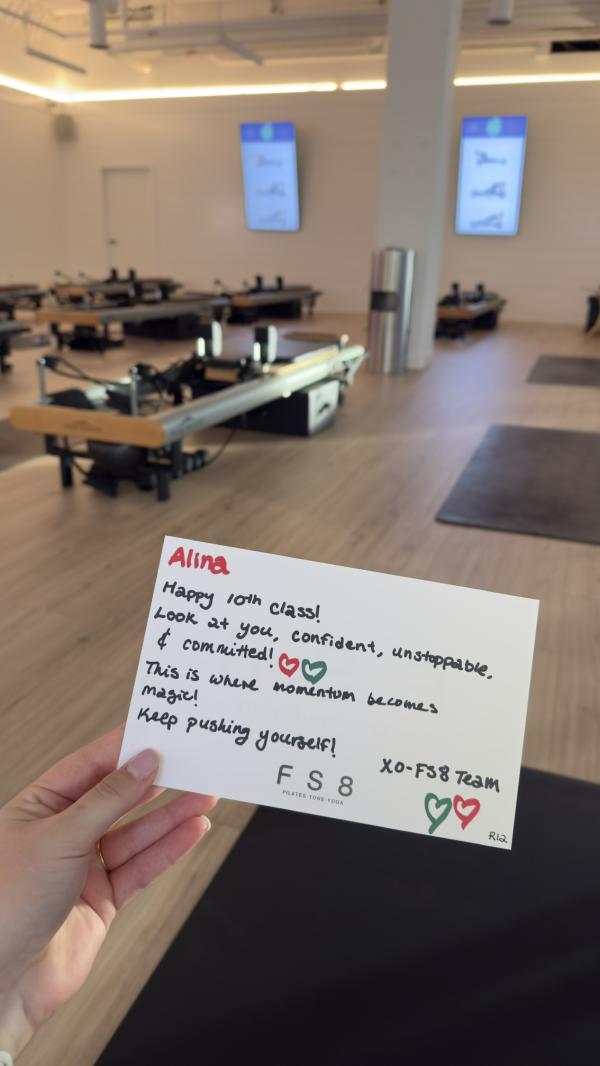 Alina
Happy 10th class!
Look at you, confident, unstoppable,
& committed!
This is where momentum becomes
magic!
Keep pushing yourself!
XO-FS8 Team
FS8
PILATES TONE YOGA
R12